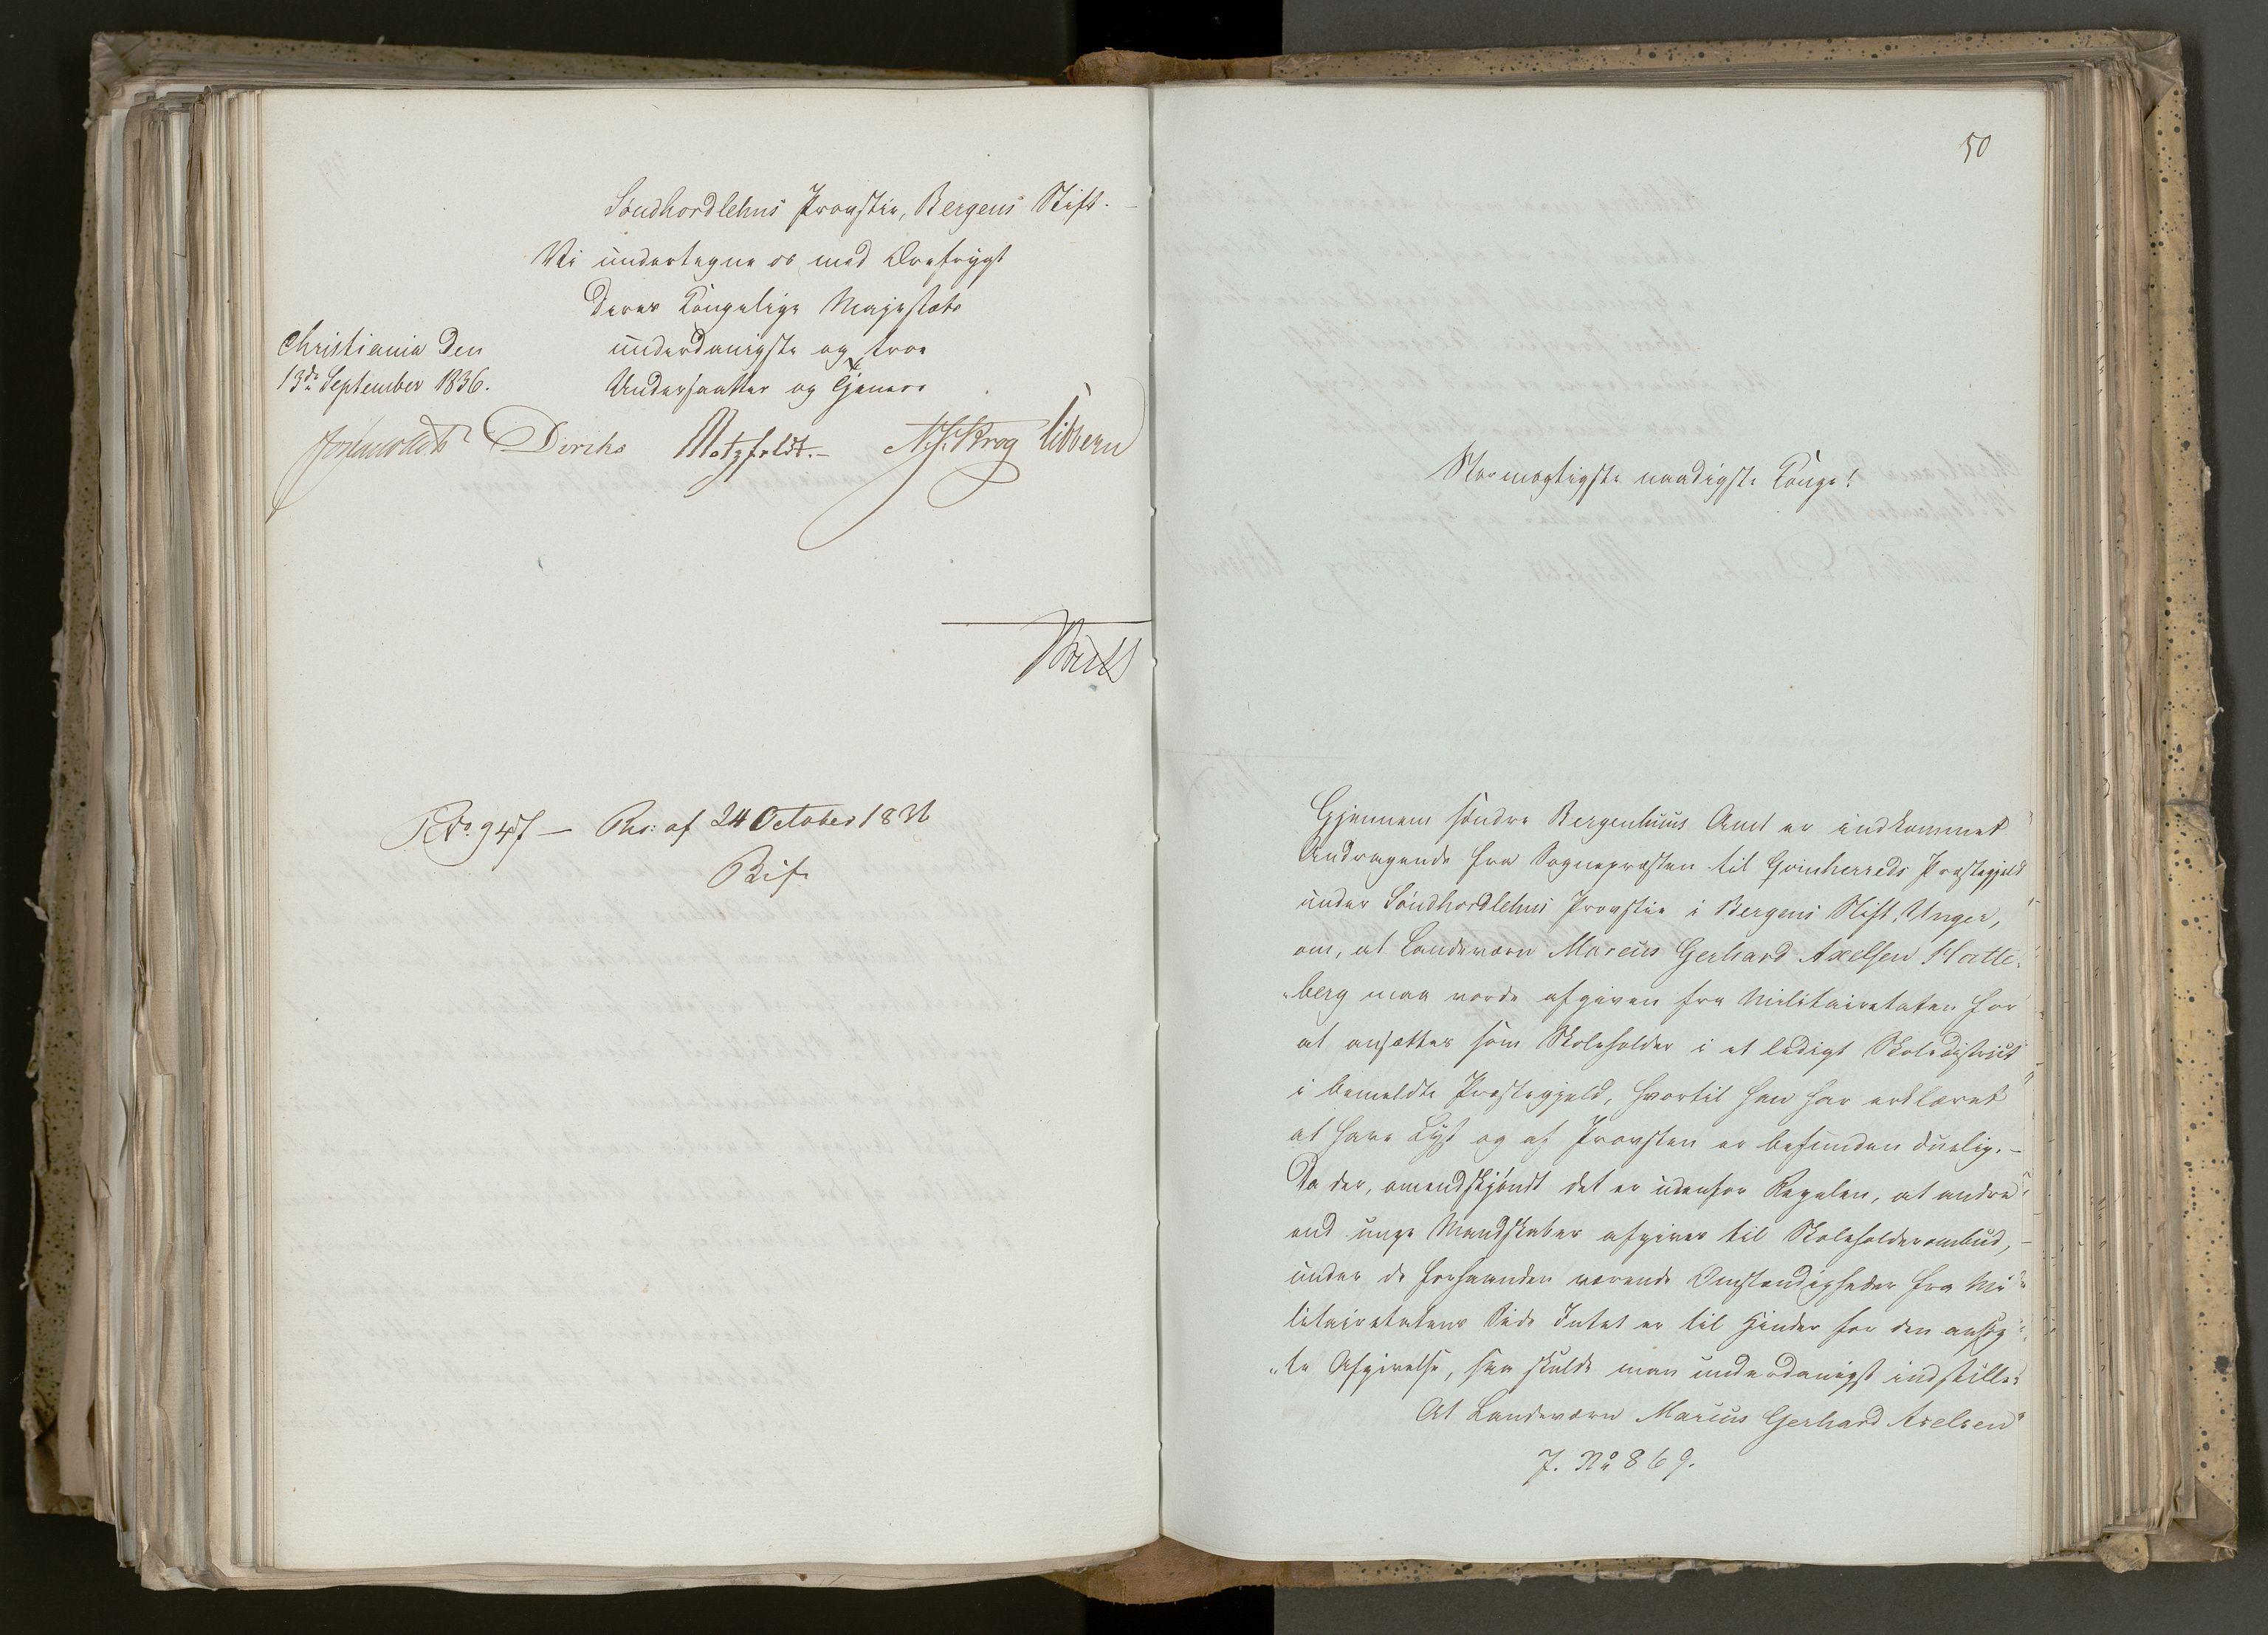 Söndhordlehns Provstie, Bergens Stift.
Vi undertegne os med Ærefrygt
Deres Kongelige Majestæts
Christiania den
13de September 1836.
underdanigste og troe
Undersaatter og Tjenere
Diriks Motzfeldt.- N. J. Krog Sibbern
No 947 — Res: af 24 October 1836
Bif.
50
Stormægtigste naadigste Konge!
Gjennem söndre Bergenhuus Amt er indkommet
Andragende fra Sognepræsten til Qvinherreds Præstegjeld
under Söndhordlehns Provstie i Bergens Stift, Unger,
om, at Landeværn Marcus Gerhard Axelsen Hatte-
berg maa vorde afgiven fra Militairetaten for
at ansættes som Skoleholder i et ledigt Skoledistrict
i bemeldte Præstegjeld, hvortil han har erklæret
at have Lyst og af Provsten er befunden duelig.-
Da der, omendskjöndt det er udenfor Regelen, at andre
end unge Mandskaber afgives til Skoleholderombud,
under de forhaanden værende Omstændigheder fra Mi-
litairetatens Side Intet er til Hinder for den ansøg-
te Afgivelse, saa skulde man underdanigst indstille:
At Landeværn Marcus Gerhard Axelsen
J. No 869.